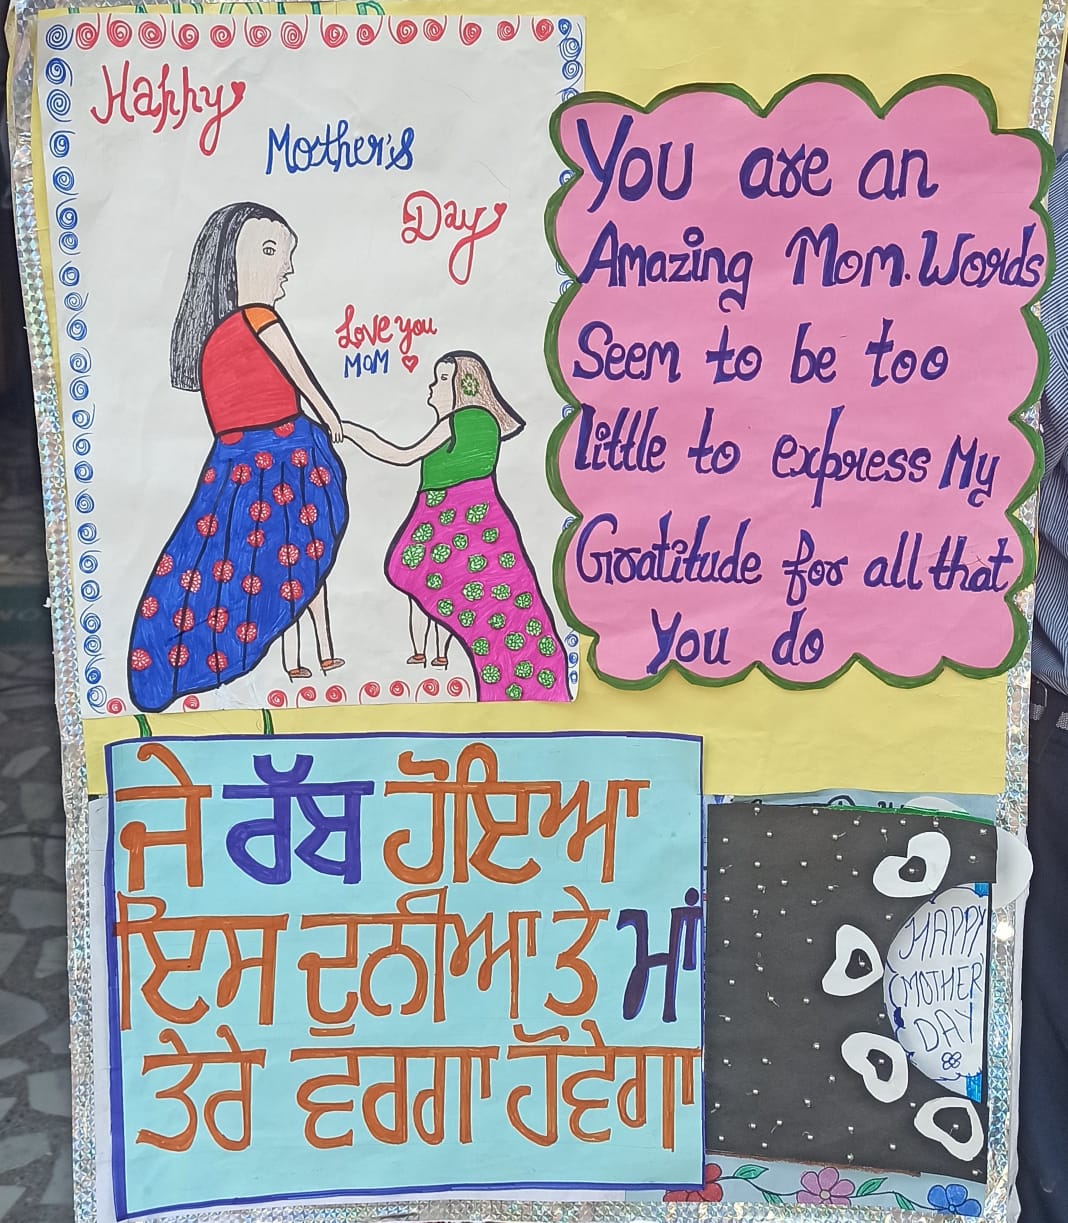 Happy
Mother's
Day
Love you
MOM
You are an
Amazing Mom. Words
Seem to be too
little to express My
Gratitude for all that
you do
ਜੇ ਰੱਬ ਹੋਇਆ
ਇਸ ਦੁਨੀਆ ਤੇ ਮਾਂ
ਤੇਰੇ ਵਰਗਾ ਹੋਵੇਗਾ
HAPPY
MOTHER
DAY